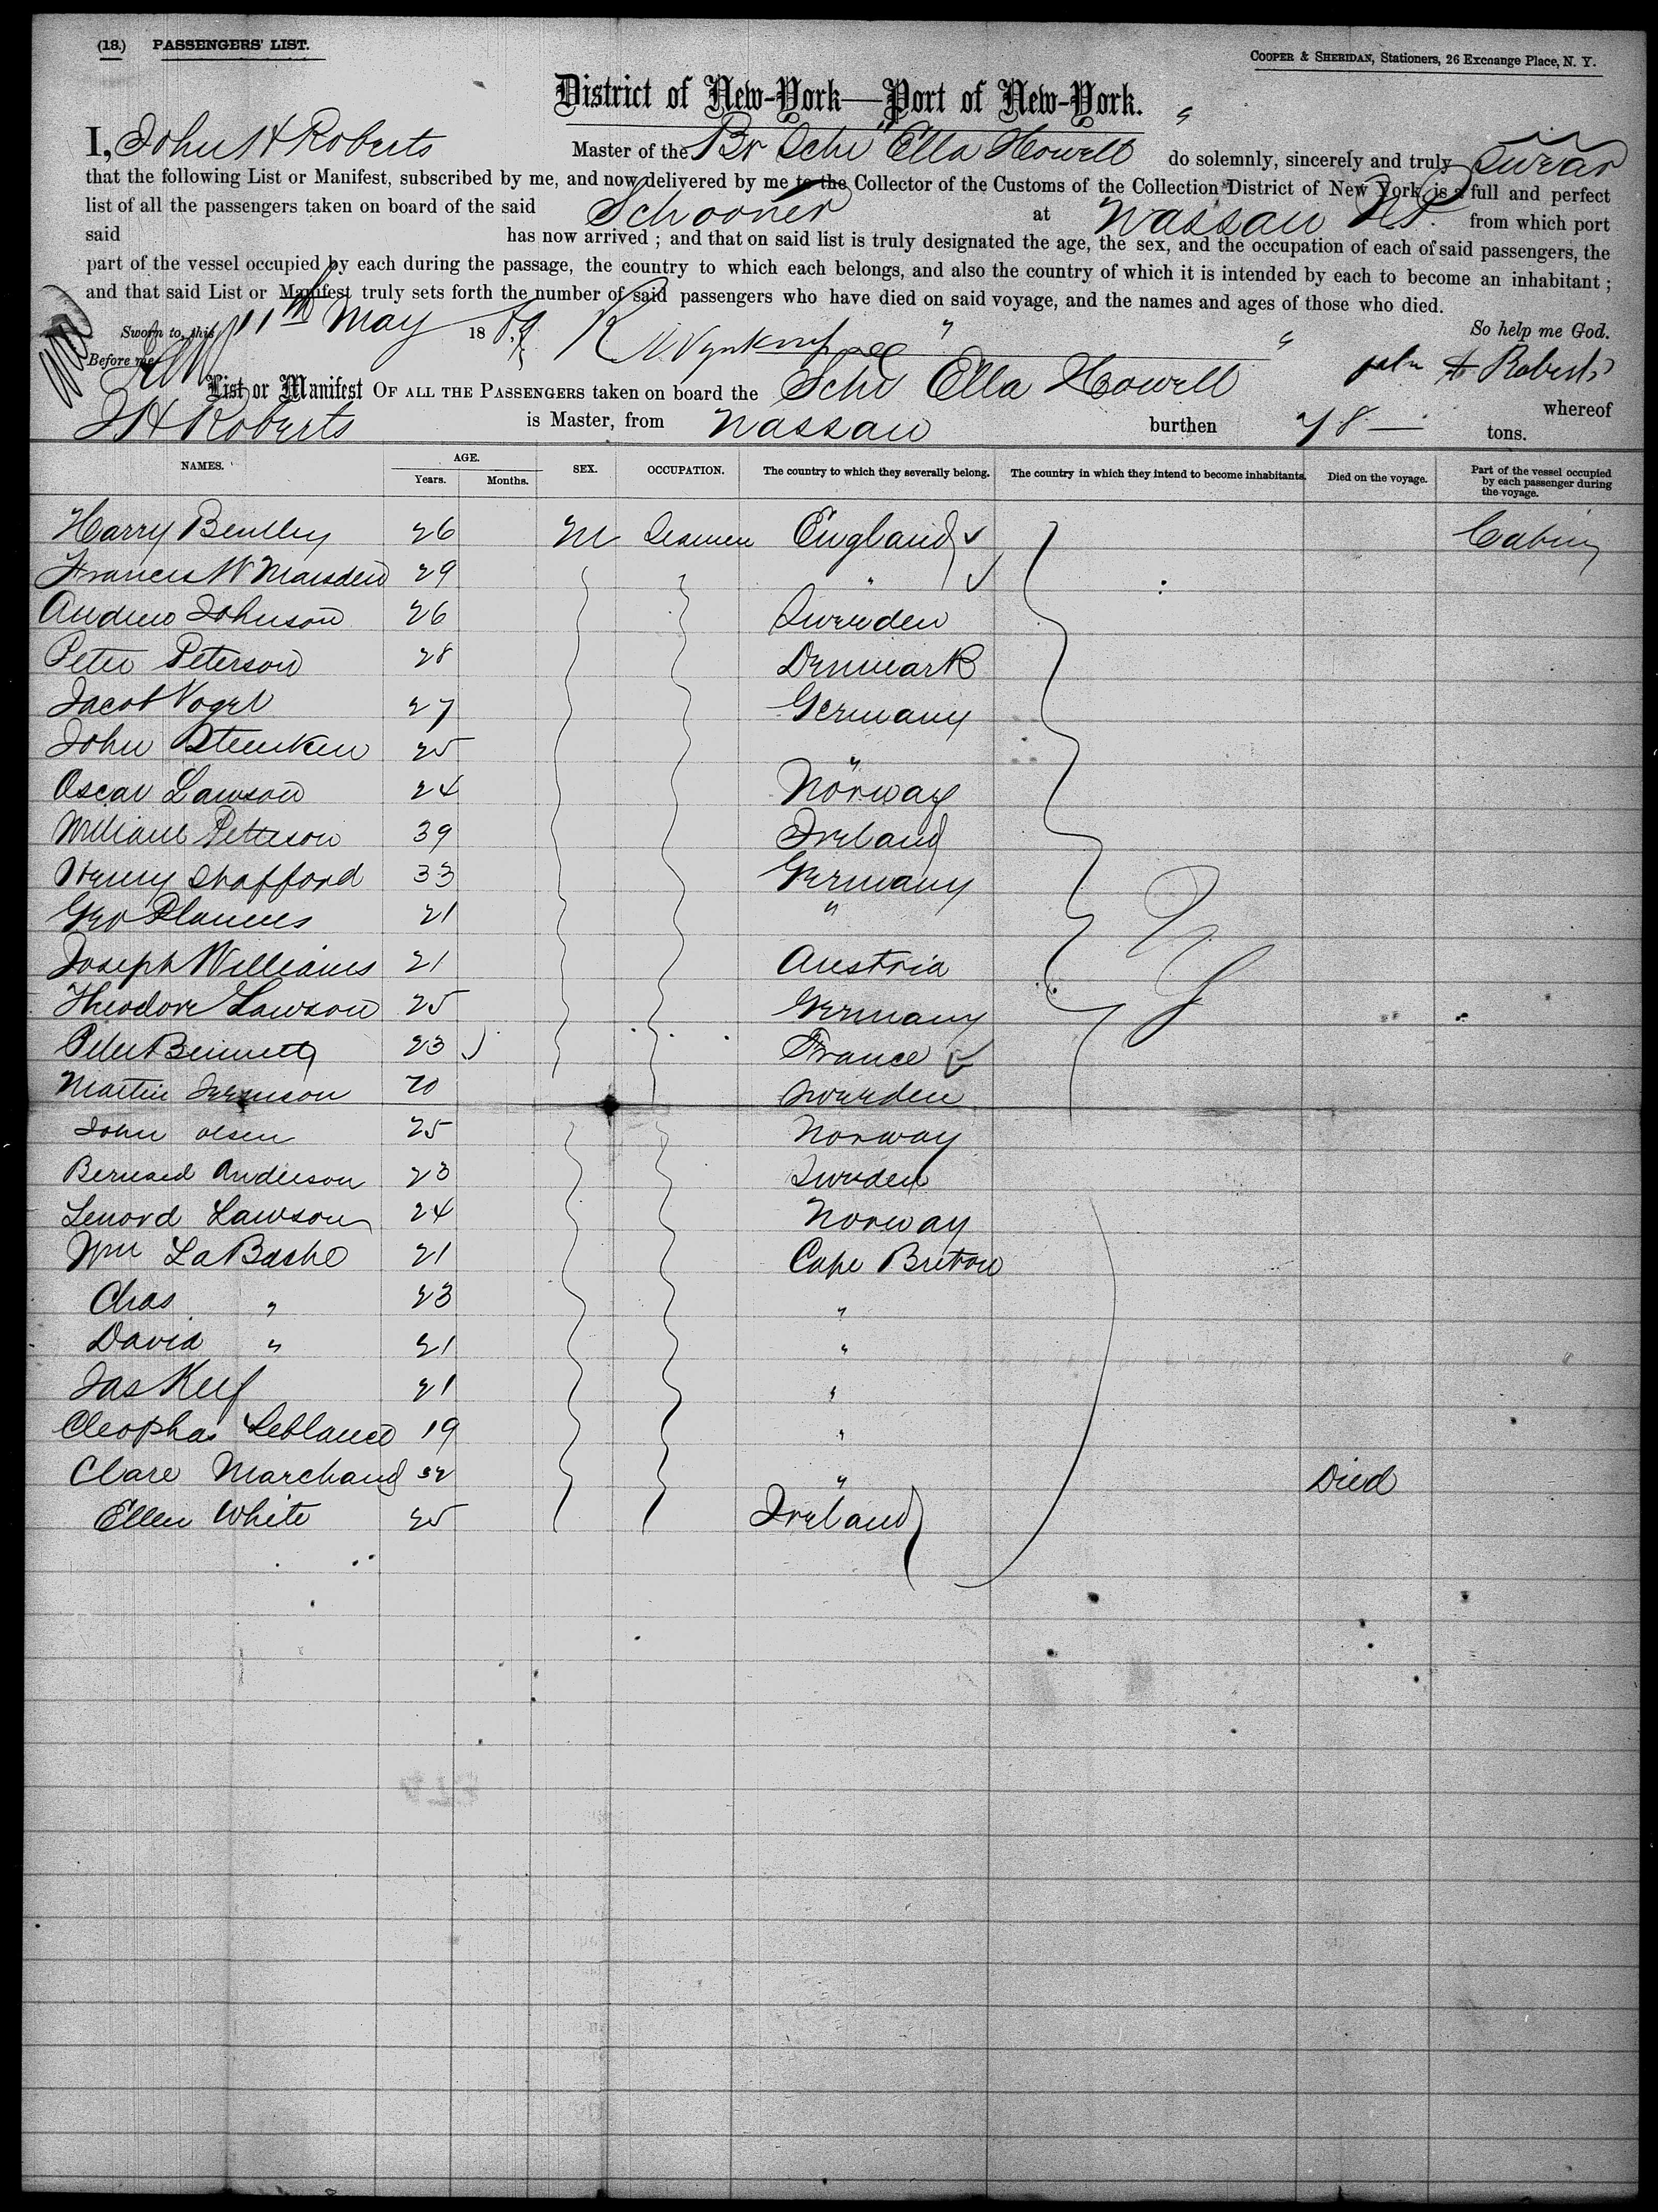 (18.) PASSENGERS' LIST.
COOPER & SHERIDAN, Stationers, 26 Exchange Place, N. Y.
District of New-York—Port of New-York.
I, John H Roberts Master of the Br Schr "Ella Howell" do solemnly, sincerely and truly swear
that the following List or Manifest, subscribed by me, and now delivered by me to the Collector of the Customs of the Collection District of New York, is a full and perfect
list of all the passengers taken on board of the said Schooner at Nassau N.P. from which port
said has now arrived ; and that on said list is truly designated the age, the sex, and the occupation of each of said passengers, the
part of the vessel occupied by each during the passage, the country to which each belongs, and also the country of which it is intended by each to become an inhabitant ;
and that said List or Manifest truly sets forth the number of said passengers who have died on said voyage, and the names and ages of those who died.
Sworn to, this 11th May 18 So help me God.
Before me John H Roberts
List or Manifest OF ALL THE PASSENGERS taken on board the Schr Ella Howell whereof
J H Roberts is Master, from Nassau burthen 78 — tons.
NAMES. AGE. Years. Months. SEX. OCCUPATION. The country to which they severally belong. The country in which they intend to become inhabitants. Died on the voyage. Part of the vessel occupied by each passenger during the voyage.
Harry Bentley 26 M Seamen England Cabin
Francis W Marsden 29 "
Andrew Johnson 26 Sweeden
Peter Peterson 28 Denmark
Jacob Vogel 27 Germany
John 25 "
Oscar Lawson 24 Norway
William Petterson 39 Ireland
Henry Shafford 33 Germany
Geo 21 "
Joseph Williams 21 Austria
Theodore Lawson 25 Germany
Peter Bennett 23 France
Martin 20 Sweeden
John Olsen 25 Norway
Bernard Anderson 23 Sweden
Lenord Lawson 24 Norway
Wm LaBashe 21 Cape Breton
Chas " 23 "
David " 21 "
Jas Keef 21 "
Cleophas Leblance 19 "
Clare Marchand 32 " Died
Ellen White 25 Ireland